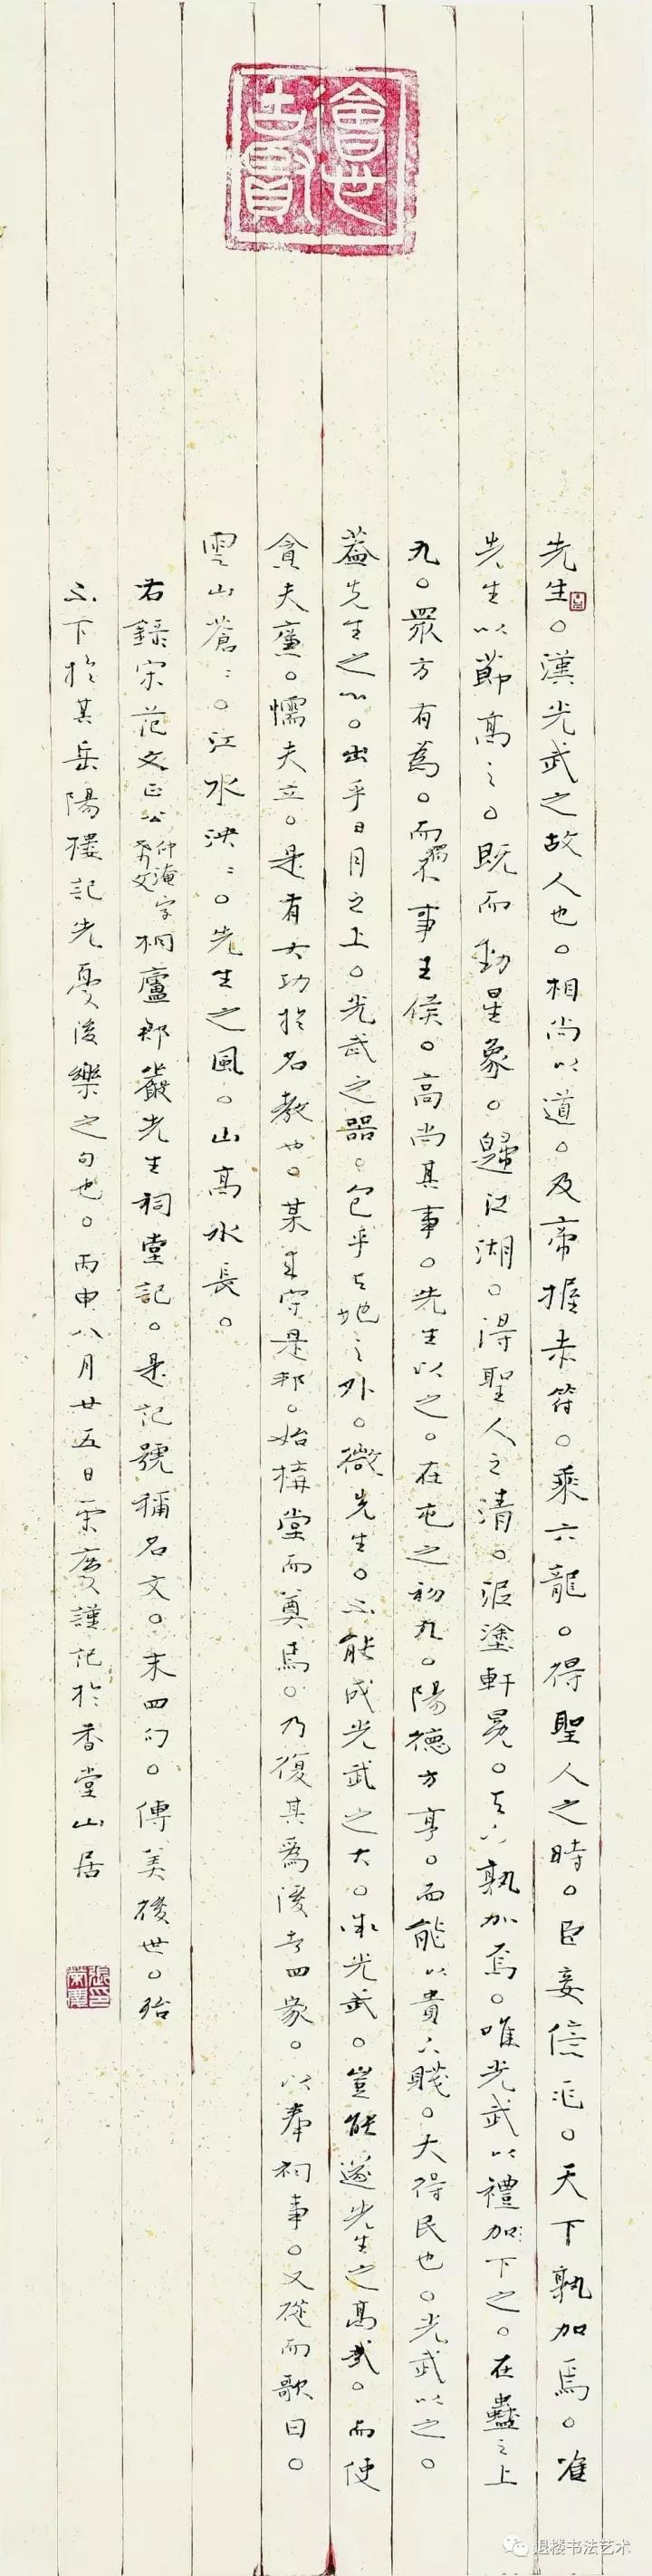 先生。漢光武之故人也。相尚以道。及帝握赤符。乘六龍。得聖人之時。臣妾億兆。天下孰加焉。准
先生以節高之。既而動星象。歸江湖。得聖人之清。泥塗軒冕。天下孰加焉。唯光武以禮加下之。在蠱之上
九。眾方有為。而獨不事王侯。高尚其事。先生以之。在屯之初九。陽德方亨。而能以貴下賤。大得民也。光武以之。
蓋先生之心。出乎日月之上。光武之器。包乎天地之外。微先生。不能成光武之大。微光武。豈能遂先生之高哉。而使
貪夫廉。懦夫立。是有大功於名教也。某來守是邦。始構堂而奠焉。乃復其為後者四家。以奉祠事。又從而歌曰。
雲山蒼:。江水泱:。先生之風。山高水長。
右錄宋范文正公仲淹字希文桐廬郡嚴先生祠堂記。是記號稱名文。末四句。傳美後世。殆
不下於其岳陽樓記先憂後樂之句也。丙申八月廿五日榮慶謹記於香堂山居
張榮慶印
退楼书法艺术